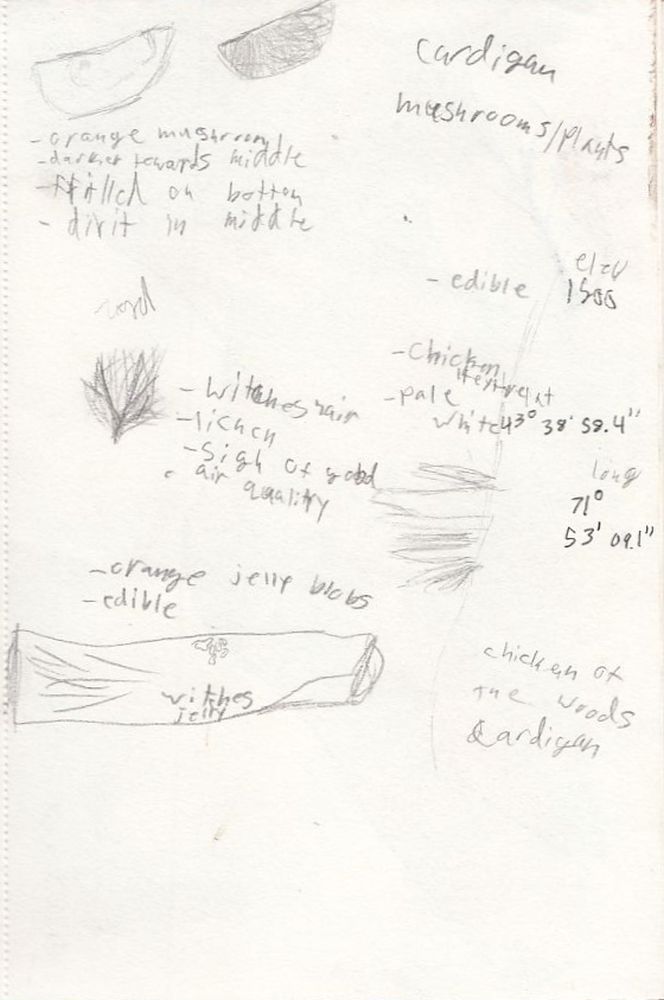 cardigan
mushrooms/plants
- orange mushroom
- darker towards middle
- frilled on bottom
- divit in middle
- edible
elev
1500
- Chicken
- pale
white
43° 38' 58.4"
long
71°
53' 09.1"
- witches hair
- lichen
- sign of good
air quality
- orange jelly blobs
- edible
withes
jelly
chicken of
the woods
Cardigan